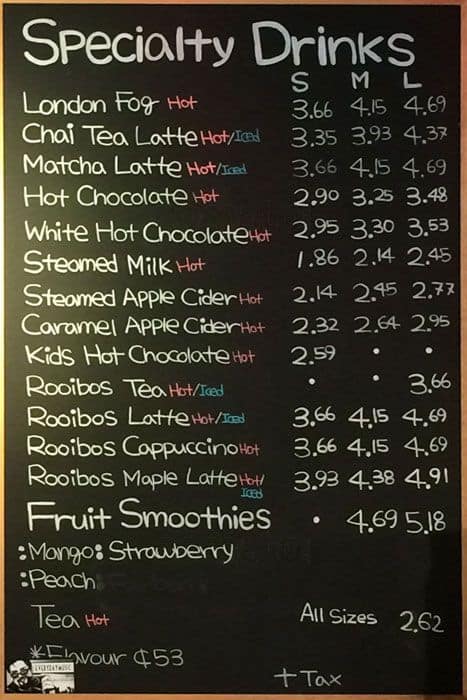 Specialty Drinks
S M L
London Fog Hot 3.66 4.15 4.69
Chai Tea Latte Hot/Iced 3.35 3.93 4.37
Matcha Latte Hot/Iced 3.66 4.15 4.69
Hot Chocolate Hot 2.90 3.25 3.48
White Hot Chocolate Hot 2.95 3.30 3.53
Steamed Milk Hot 1.86 2.14 2.45
Steamed Apple Cider Hot 2.14 2.45 2.77
Caramel Apple Cider Hot 2.32 2.64 2.95
Kids Hot Chocolate Hot 2.59 • •
Rooibos Tea Hot/Iced • • 3.66
Rooibos Latte Hot/Iced 3.66 4.15 4.69
Rooibos Cappuccino Hot 3.66 4.15 4.69
Rooibos Maple Latte Hot/ 3.93 4.38 4.91
Iced
Fruit Smoothies • 4.69 5.18
:Mango: Strawberry
:Peach
Tea Hot All Sizes 2.62
*Flavour ¢53
EVERYDAYMUSIC
+ Tax